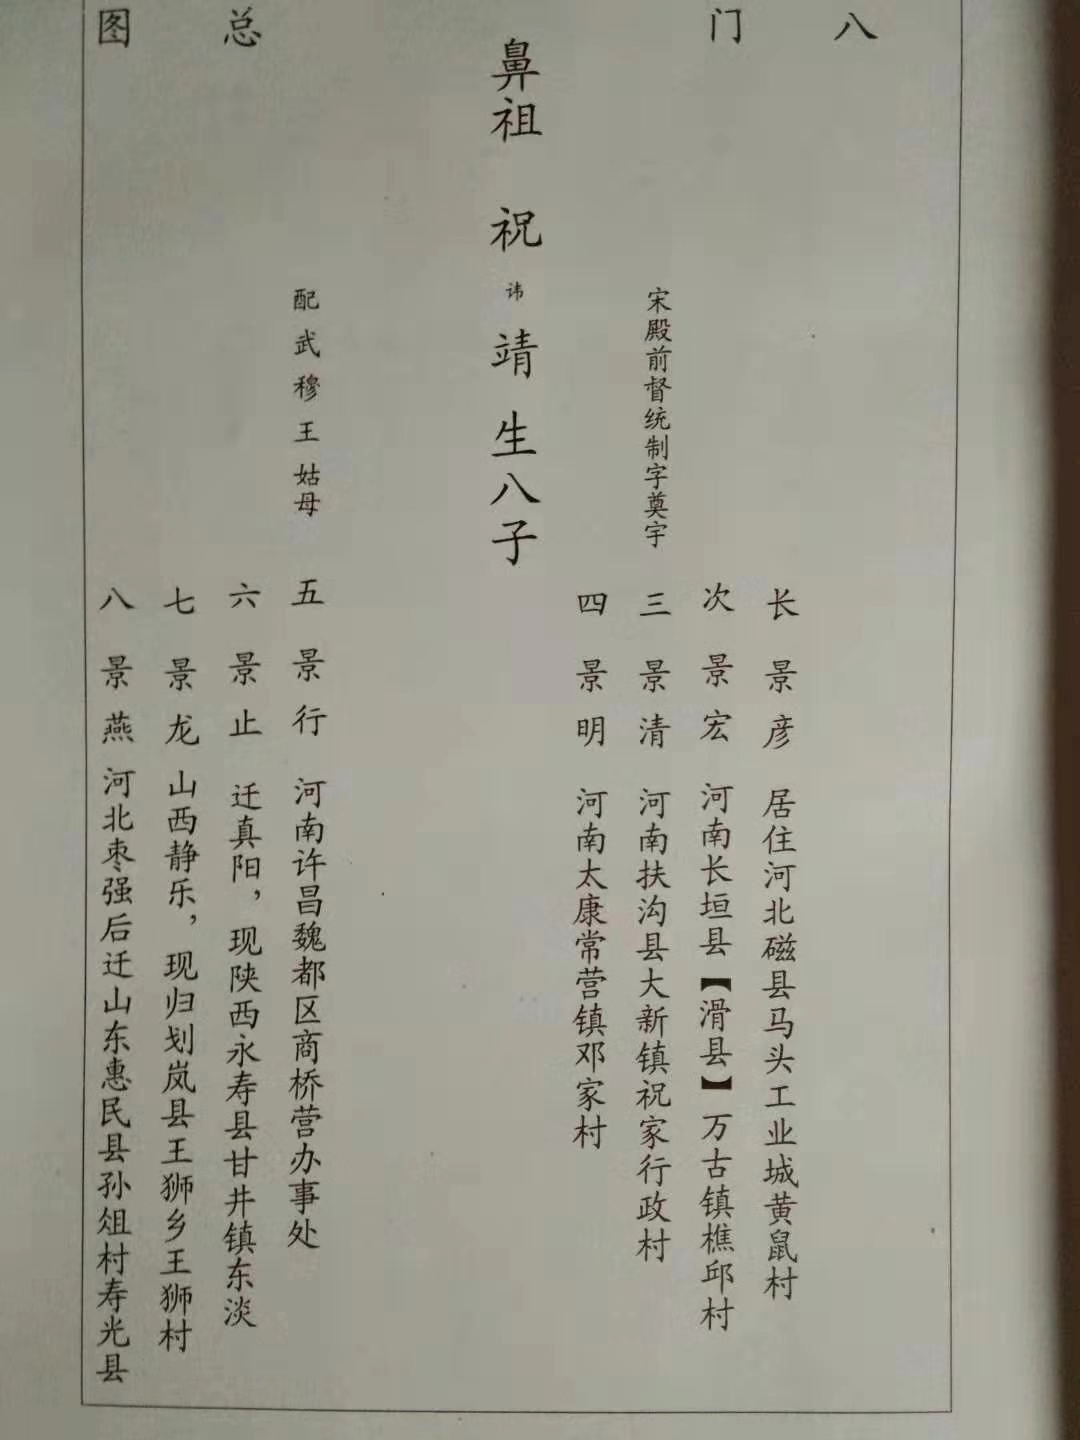 八门总图
宋殿前督统制字奠宇
鼻祖 祝讳靖生八子
配武穆王姑母
长景彦 居住河北磁县马头工业城黄鼠村
次景宏 河南长垣县【滑县】万古镇樵邱村
三景清 河南扶沟县大新镇祝家行政村
四景明 河南太康常营镇邓家村
五景行 河南许昌魏都区商桥营办事处
六景止 迁真阳，现陕西永寿县甘井镇东淡
七景龙 山西静乐，现归划岚县王狮乡王狮村
八景燕 河北枣强后迁山东惠民县孙俎村寿光县